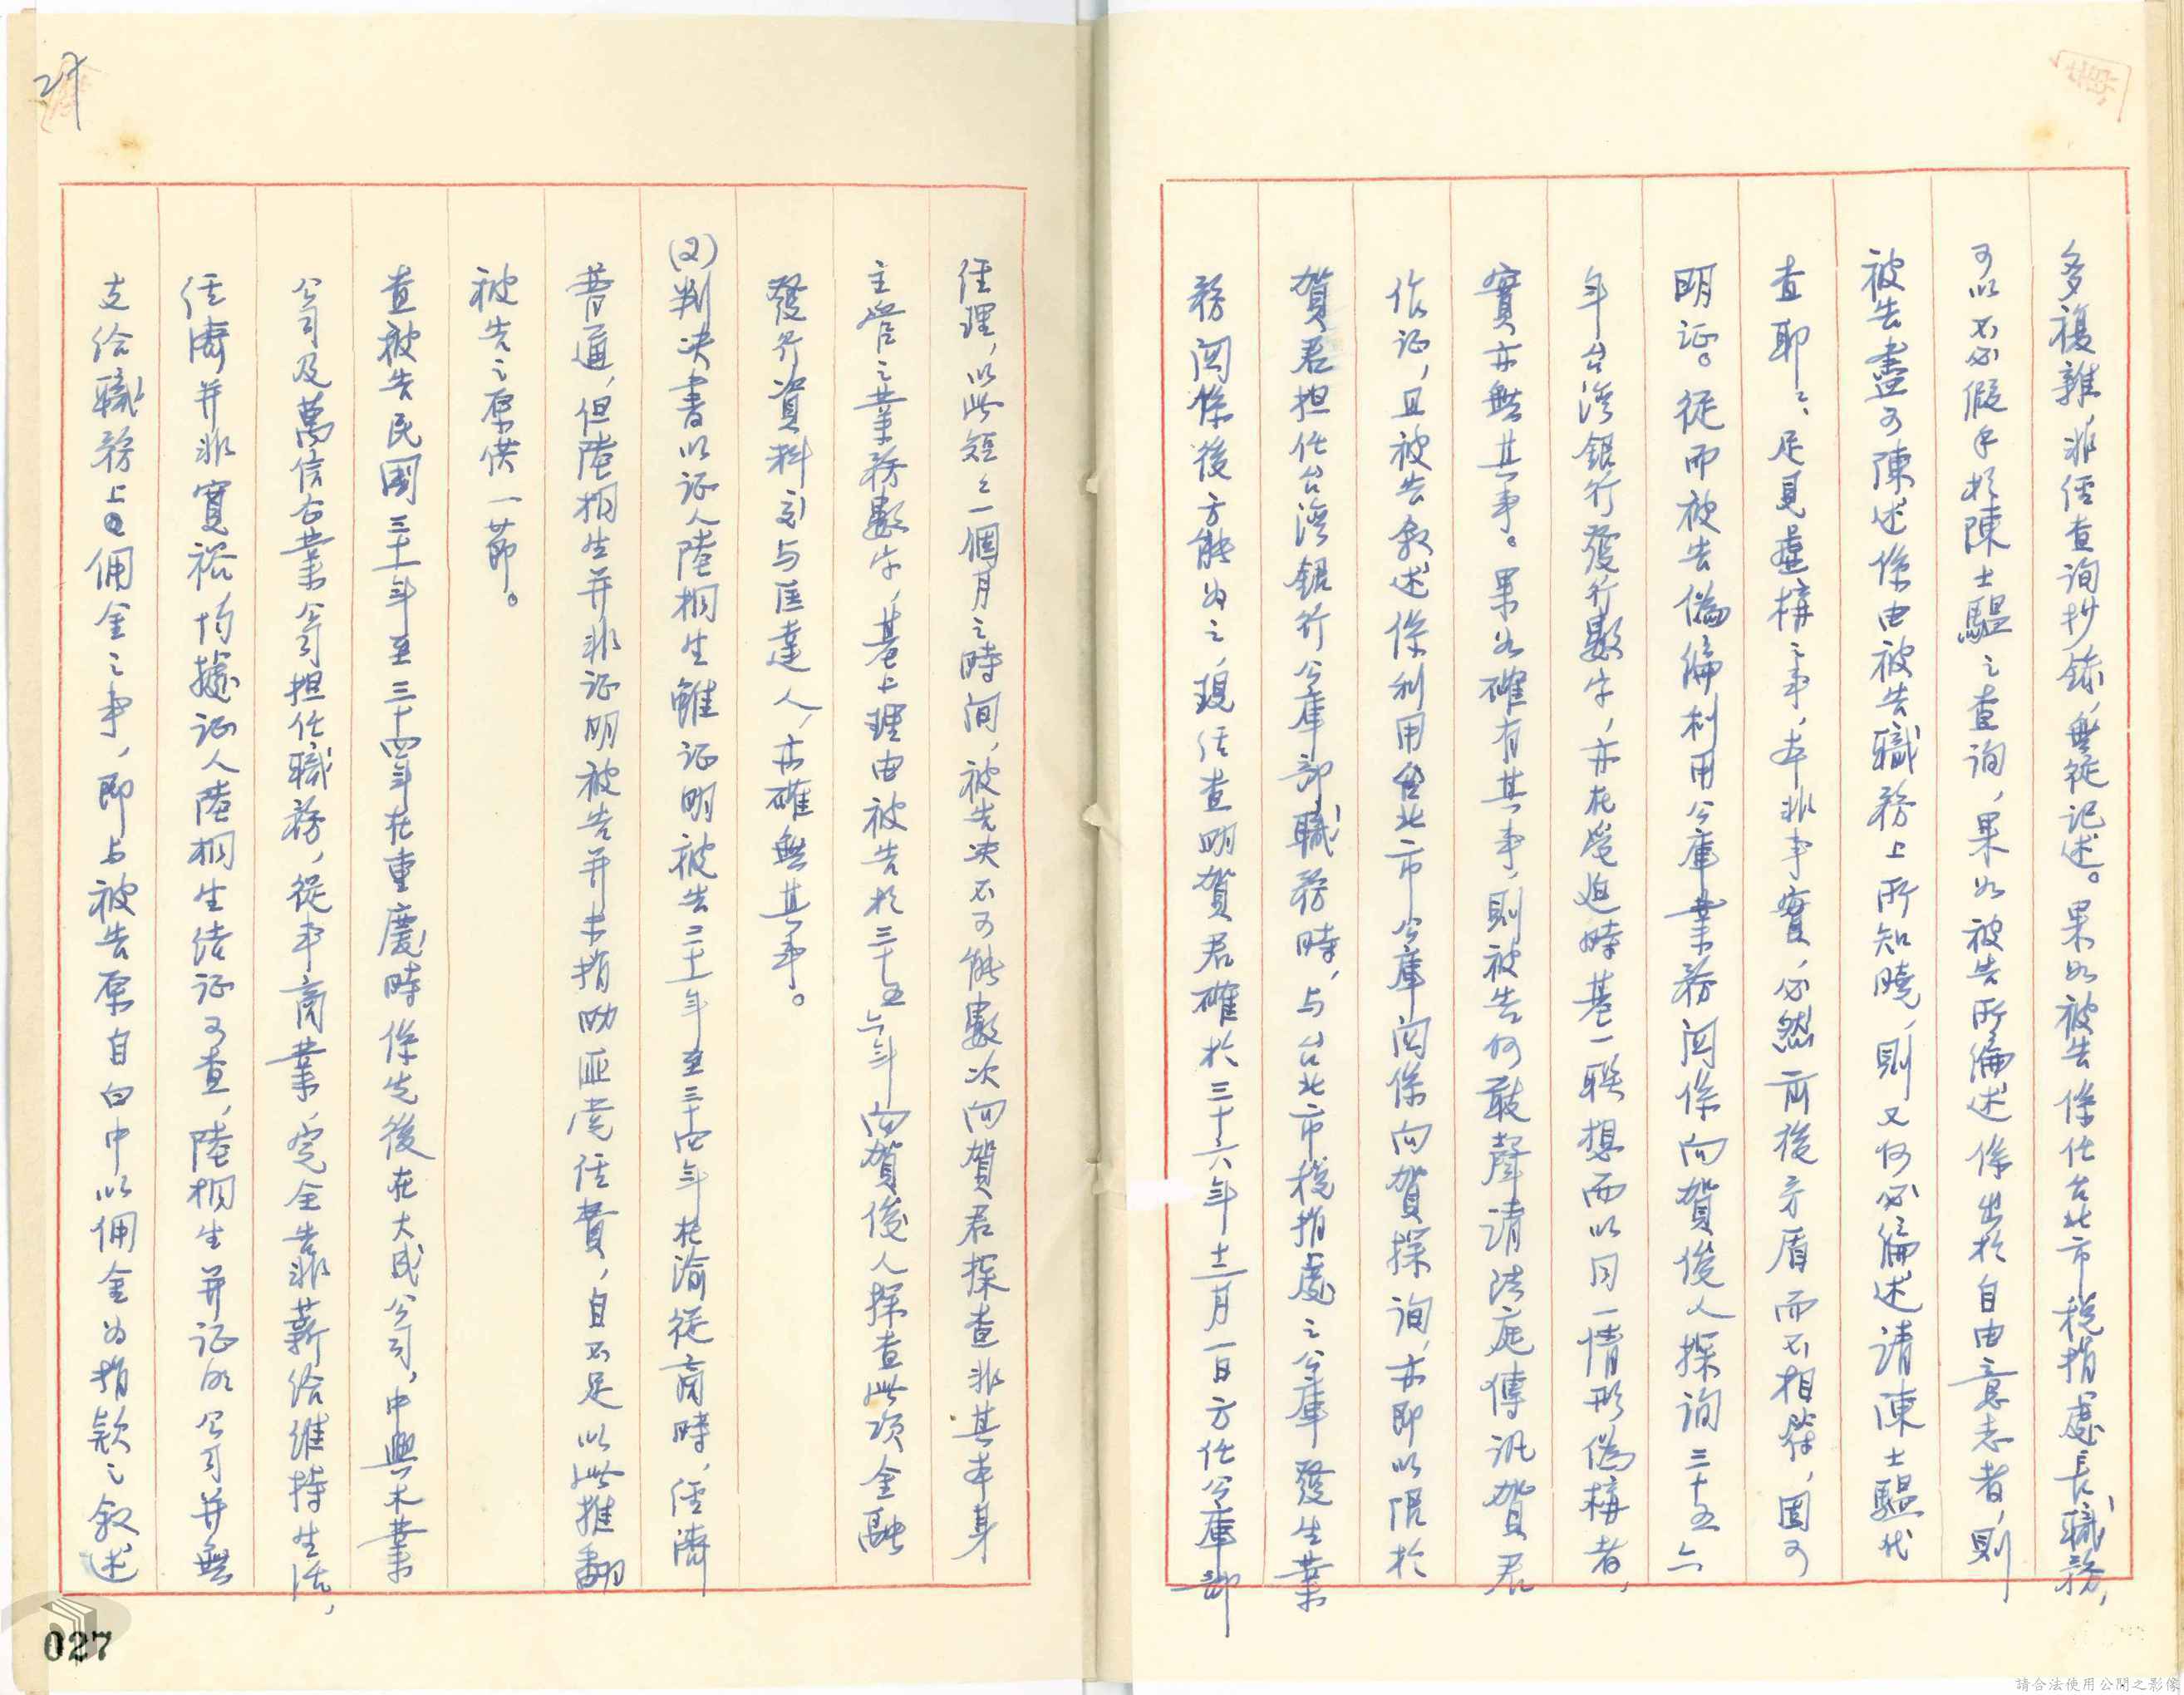 多複雜，非經查詢抄錄，無從記述。果如被告係任台北市稅捐處長職務，
可以不必假手於陳士驅之查詢，果如被告所編述係出於自由意志者，則
被告盡可陳述係由被告職務上所知曉，則又何必編述請陳士驅代
查耶？足見虛構之事，本非事實，必然前後矛盾而不相符，固可
明证。從而被告偽編利用公庫業務関係向賀俊人探詢三十五六
年台湾銀行發行數字，亦在窘迫時基一联想而以同一情形偽構者，
實亦無其事。果如確有其事，則被告何敢聲請法庭傳訊賀君
作证，且被告叙述係利用台北市公庫関係向賀探詢，亦即以限於
賀君担任台湾銀行公庫部職務時，与台北市稅捐處之公庫發生業
務関係後方能为之，現经查明賀君確於三十六年十二月一日方任公庫部
经理，以此短短一個月之時间，被告决不可能數次向賀君探查非其本身
主管之業務數字，基上理由被告於三十五六年向賀俊人探查此项金融
發行資料交与匡達人，亦確無其事。
(2)判决書以证人陸桐生雖证明被告三十一年至三十四年在渝從商時，經濟
普通，但陸桐生并非证明被告并未捐助匪党经費，自不足以此推翻
被告之原供一節。
查被告民國三十一年至三十四年在重慶時係先後在大成公司，中興木業
公司及萬信石業公司担任職務，從事商業，完全告非薪给維持生活，
任濟并非寬裕均據证人陸桐生结证可查，陸桐生并证明公司并無
支给職務上佣金之事，即与被告原自白中以佣金为捐款之叙述
27
027
請合法使用公開之影像